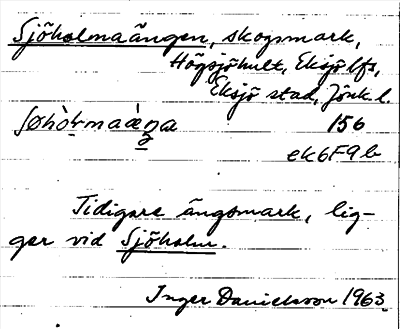 Sjöholmaängen, skogsmark,
Högsjöhult, Eksjö lfs,
Eksjö stad, Jönk. l.
156
ek6F9b
Tidigare ängsmark, lig-
ger vid Sjöholm.
Inger Danielsson 1963